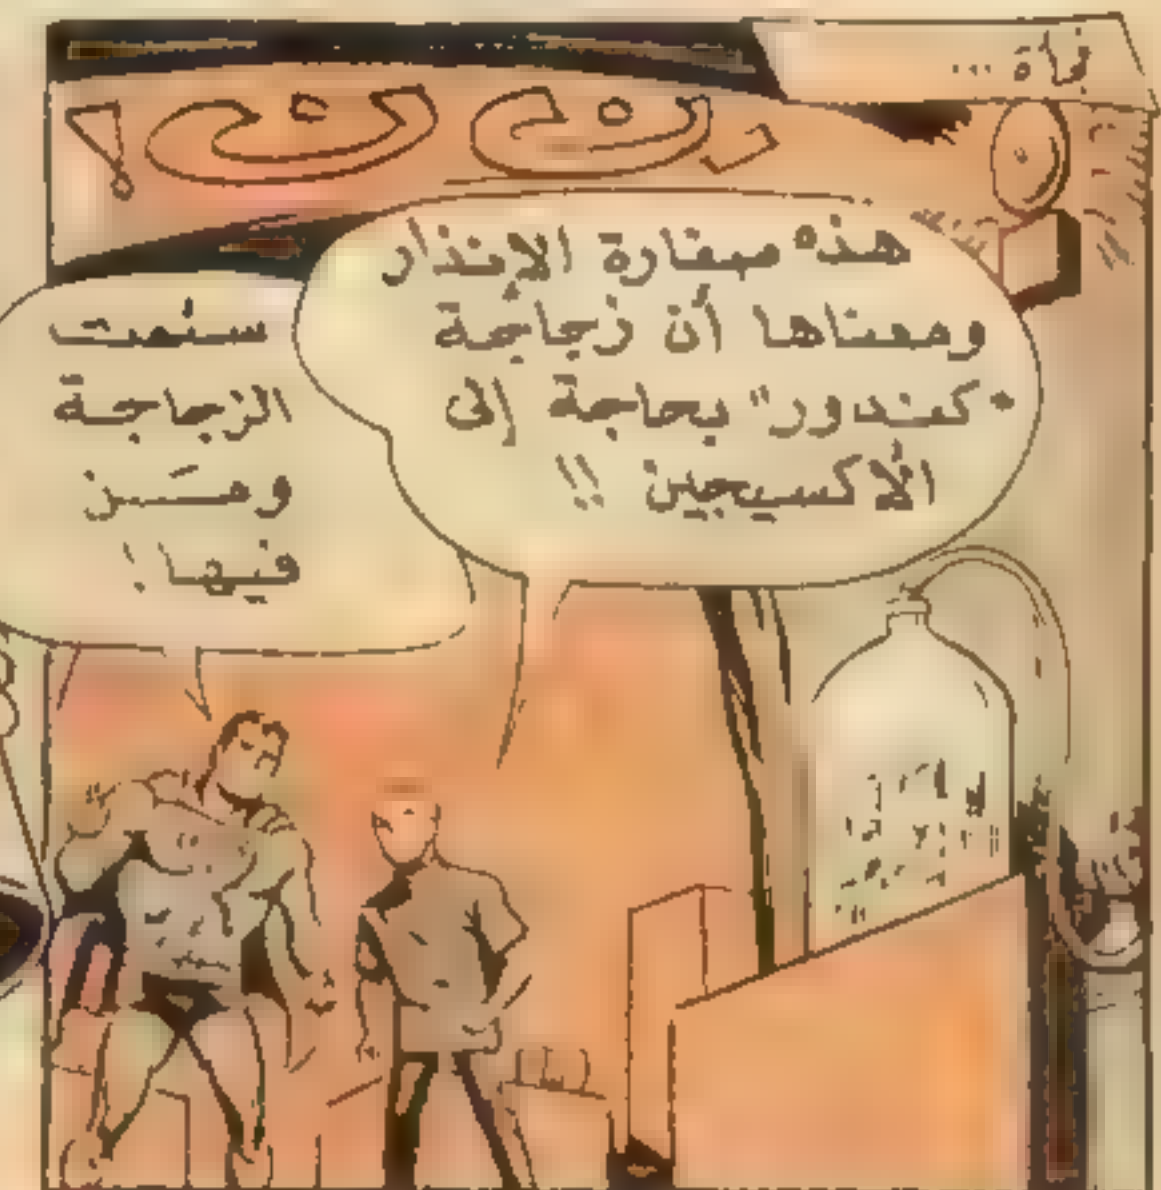 فجأة ...
رن ن ن !
هذه صفارة الإنذار
ومعناها أن زجاجة
"كندور" بحاجة إلى
الأكسيجين !!
سئمت
الزجاجة
ومن
فيها !